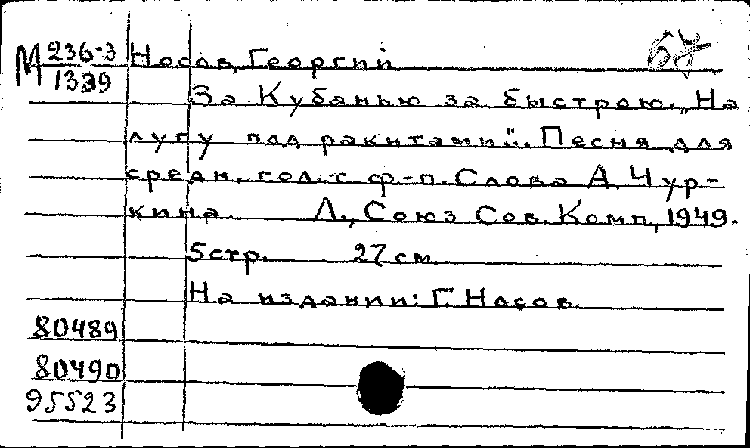 М 236-3 Носов, Георгий
1339 За Кубанью за быстрою. „На
лугу под ракитами". Песня для
средн. гол. с ф-п. Слова А. Чур-
кина. Л., Союз Сов. Комп., 1949.
5 стр. 27 см.
На издании: Г. Носов.
80489
80490
95523